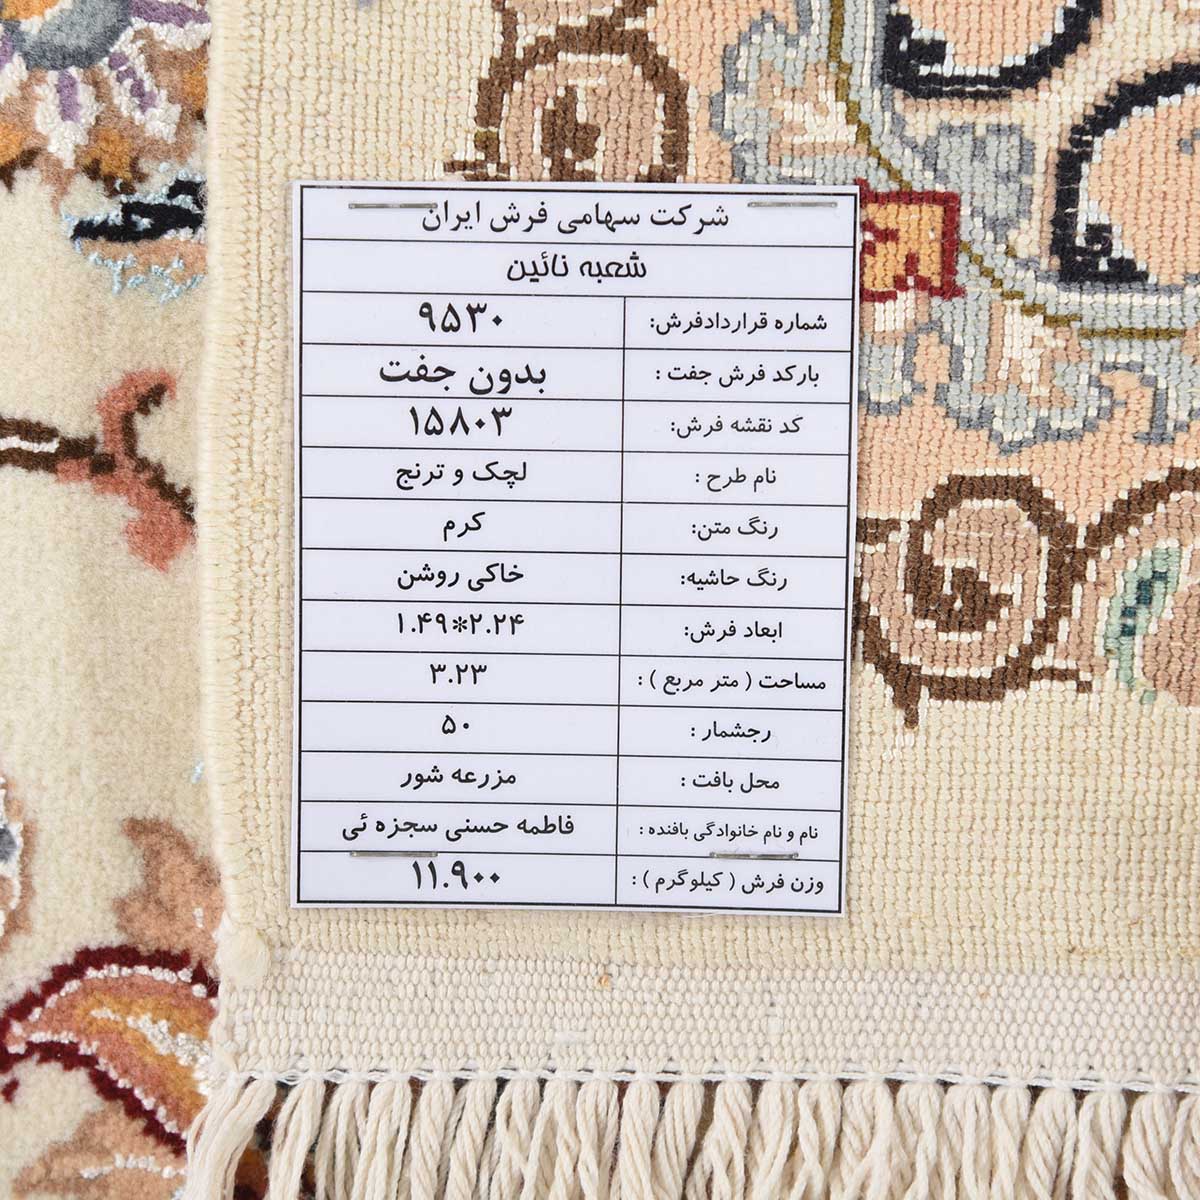 شرکت سهامی فرش ایران
شعبه نائین
شماره قراردادفرش: ۹۵۳۰
بارکد فرش جفت : بدون جفت
کد نقشه فرش: ۱۵۸۰۳
نام طرح : لچک و ترنج
رنگ متن: کرم
رنگ حاشیه: خاکی روشن
ابعاد فرش: ۱.۴۹*۲.۲۴
مساحت ( متر مربع ) : ۳.۲۳
رجشمار : ۵۰
محل بافت : مزرعه شور
نام و نام خانوادگی بافنده : فاطمه حسنی سجزه ئی
وزن فرش ( کیلوگرم ) : ۱۱.۹۰۰